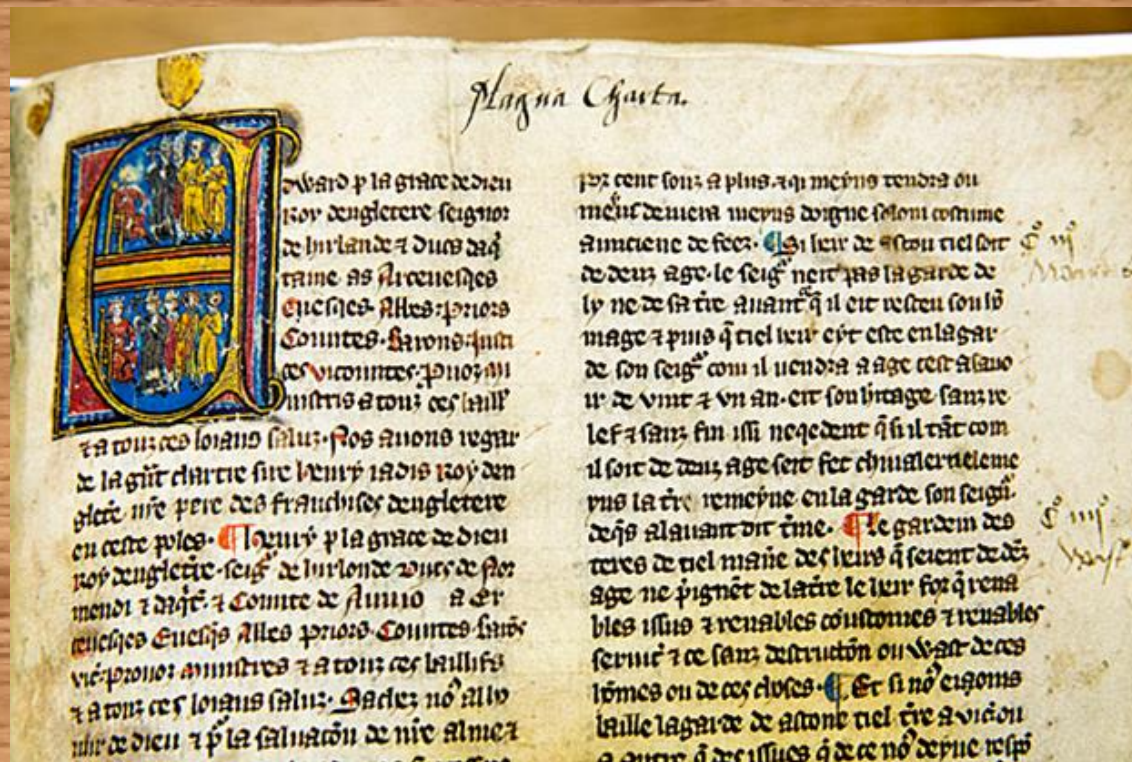 Magna Charta.
Edward p la grace de dieu
Roy dengletere seignor
de hirlande ⁊ ducs daq̄
taine as Arceuesqes
Euesqes Abbes priors
Countes Barons iusti
ces vicountes
ministris a touz ces baillˢ
⁊ a touz ces loiaus saluz nos auons regar
de la gͣnt chartre sire henry iadis Roy den
glet̄e nr̄e pere des franchises dengletere
en ceste ¶ Henry p la grace de dieu
roy denglet̄re seigͬ de hirlonde ducs de Nor
mendi ⁊ daq̄t ⁊ Counte de a Er
ceuesqes Euesq̄s Abbes priors Countes
ministres ⁊ a touz ces baillifs
⁊ a touz ces loiaus saluz Sachez
de dieu ⁊ p̄ la saluacōn de nr̄e alme ⁊
por cent souz a plus ⁊ qi meyns tendra ou
meins deuera meyns doigne solom costume
aunciene de feez ¶ Si heir de ascou tiel soit
de denz age le seigͬ neit pas la garde de
ly ne de sa t̄re auant q̄ il eit resceu son ho
mage ⁊ puis q̄ tiel heir eyt este en la gar
de son seigͬ com il uendra a age cest asauo
ir de vint ⁊ vn an eit son h̄itage sanz re
lef ⁊ sanz fin issi neqedent q̄ si il tāt com
il soit de denz age seit fet chiualer
yns la t̄re remeyne en la garde son seigͬ
deq̄s al auant dit t̄me ¶ Le gardein des
teres de tiel man̄e des heirs q̄ seient de dēz
age ne p̄ignēt de la t̄re le heir for q̄ rena
bles issus ⁊ renables coustomes ⁊ renables
seruic̄ ⁊ ce sanz destructōn ou wast de ces
homes ou de ces choses ¶ Et si noˀ eioms
baille la garde de ascone tiel t̄re a vic̄ ou
a autre q̄ des issues q̄ de ce noˀ deyue respō
Cᵒ iijᵒ
Cᵒ iiijᵒ